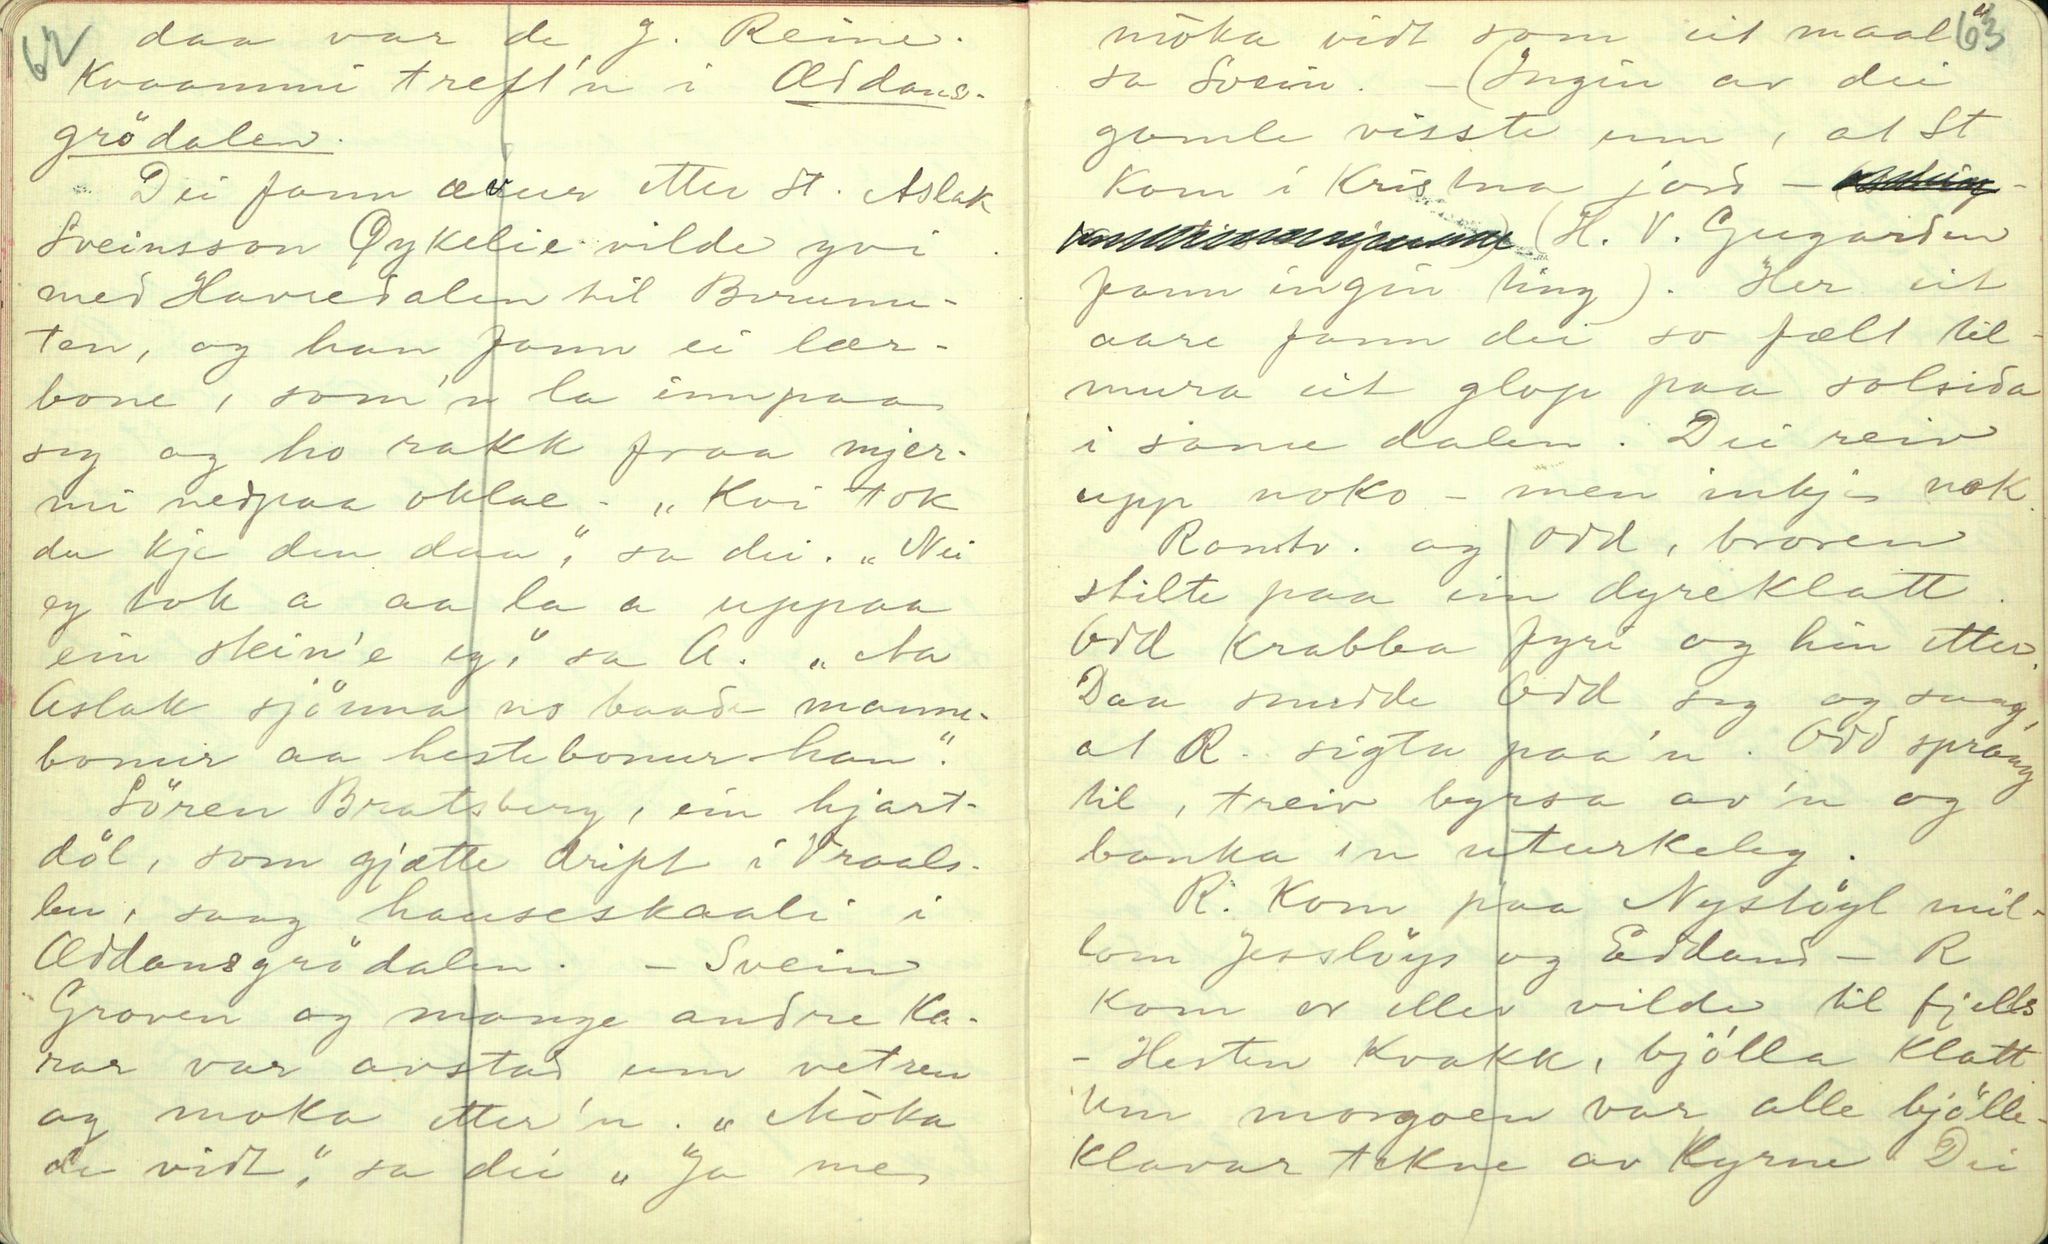 62
daa var de J. Reine.
Kvaammi treft'n i Æddans-
grödalen.
Dei fann ævur etter St. Aslak
Sveinsson Öykelie vilde yvi
med Havredalen til Brunu-
ten, og han fann ei lær-
bone, som'n la innpaa
seg og ho rakk fraa mjer-
mi nedpaa oklae. "Kvi tok
du kje den daa", sa dei. "Nei
eg tok a aa la a uppaa
ein stein'e eg", sa A. "Aa
Aslak sjönna no baade manne-
bonur aa hestebonur han".
Sören Bratsberg, ein hjart-
döl, som gjætte drift i Vraals-
len, saag hauseskaali i
Æddansgrödalen. – Svein
Groven og mange andre ka-
rar var avstad um vetren
og moka etter'n. "Möka
de vidt", sa dei "Ja me
63
möka vidt som eit maal"
sa Svein. – (Ingin av dei
gamle visste um, at St
kom i kristna jord –
(H. V. Gugarden
fann ingin ting). Her eit
aare fann dei so fælt til-
mura eit glop paa solsida
i same dalen. Dei reiv
upp noko – men inkje nok.
Rantv. og Odd, broren
stilte paa ein dyreklatt.
Odd krabba fyri og hin etter.
Daa snudde Odd seg og saag,
at R. sigta paa'n. Odd sprang
til, treiv byrsa av'n og
banka 'n uturkeleg.
R. kom paa Nystögl mil-
lom Jesslöys og Eddand – R
kom or eller vilde til fjells
– Hesten Kvakk, bjölla klatt
Um morgoen var alle bjölle-
klavar tekne av kyrne Dei